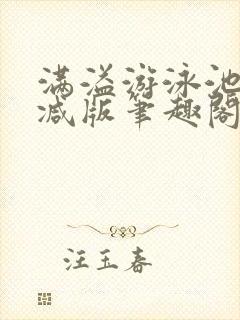 满溢游泳池
减版笔趣阁
汪玉春